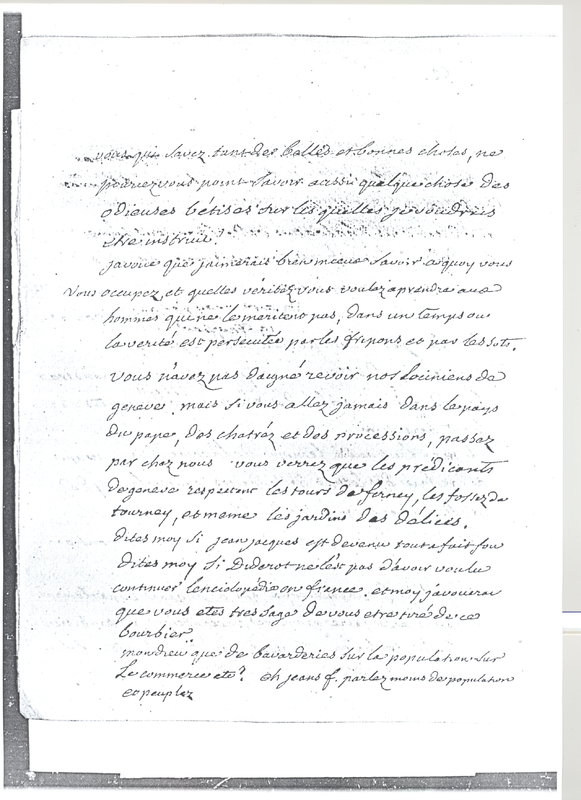 vous qui savez tant des belles et bonnes choses, ne
pouriez vous point savoir aussi quelque chose des
odieuses bétises sur les quelles je voudrais
etre instruit?
javoue que jaimerais bien mieux savoir a quoy vous
vous occupez, et quelles véritéz vous voulez aprendre aux
hommes qui ne le meritent pas, dans un temps ou
la verité est persecutée par les fripons et par les sots.
vous n'avez pas daigné revoir nos sociniens de
geneve. mais si vous allez jamais dans le pays
du pape, des chatréz et des processions, passez
par chez nous vous verrez que les prédicants
de geneve respectent les tours de ferney, les fossez de
tourney, et meme les jardins des délices.
dites moy si jean jacques est devenu tout a fait fou
dites moy si Diderot ne l'est pas d'avoir voulu
continuer l'enciclopédie en france. et moy j'avouerai
que vous etes tres sage de vous etre tiré de ce
bourbier.
mon dieu que de bavarderies sur la population sur
le commerce etc? eh jeans f. parlez moins de population
et peuplez